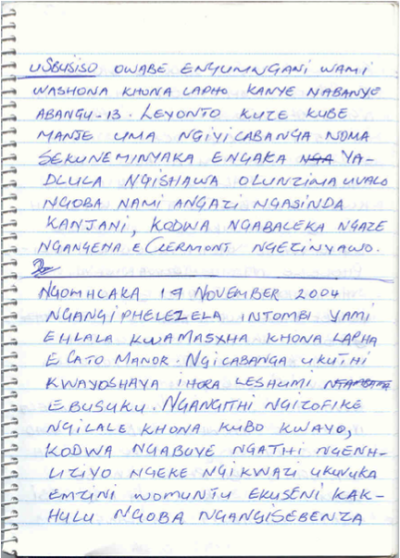 USBUSISO OWABE ENGUMNGANI WAMI
WASHONA KHONA LAPHO KANYE NABANYE
ABANGU-13. LEYONTO KUZE KUBE
MANJE UMA NGIYICABANGA NOMA
SEKUNEMINYAKA ENGAKA NGA YA-
DLULA NGISHAWA OLUNZIMA UVALO
NGOBA NAMI ANGAZI NGASINDA
KANJANI, KODWA NGABALEKA NGAZE
NGANGENA E CLERMONT NGEZINYAWO.
NGOMHLAKA 19 NOVEMBER 2004
NGANGIPHELEZELA INTOMBI YAMI
EHLALA KWAMASXHA KHONA LAPHA
E CATO MANOR. NGICABANGA UKUTHI
KWAYOSHAYA IHORA LESHUMI
EBUSUKU. NGANGITHI NGIZOFIKE
NGILALE KHONA KUBO KWAYO,
KODWA NGABUYE NGATHI NGENH-
LIZIYO NGEKE NGIKWAZI UKUVUKA
EMZINI WOMUNTU EKUSENI KAK-
HULU NGOBA NGANGISEBENZA